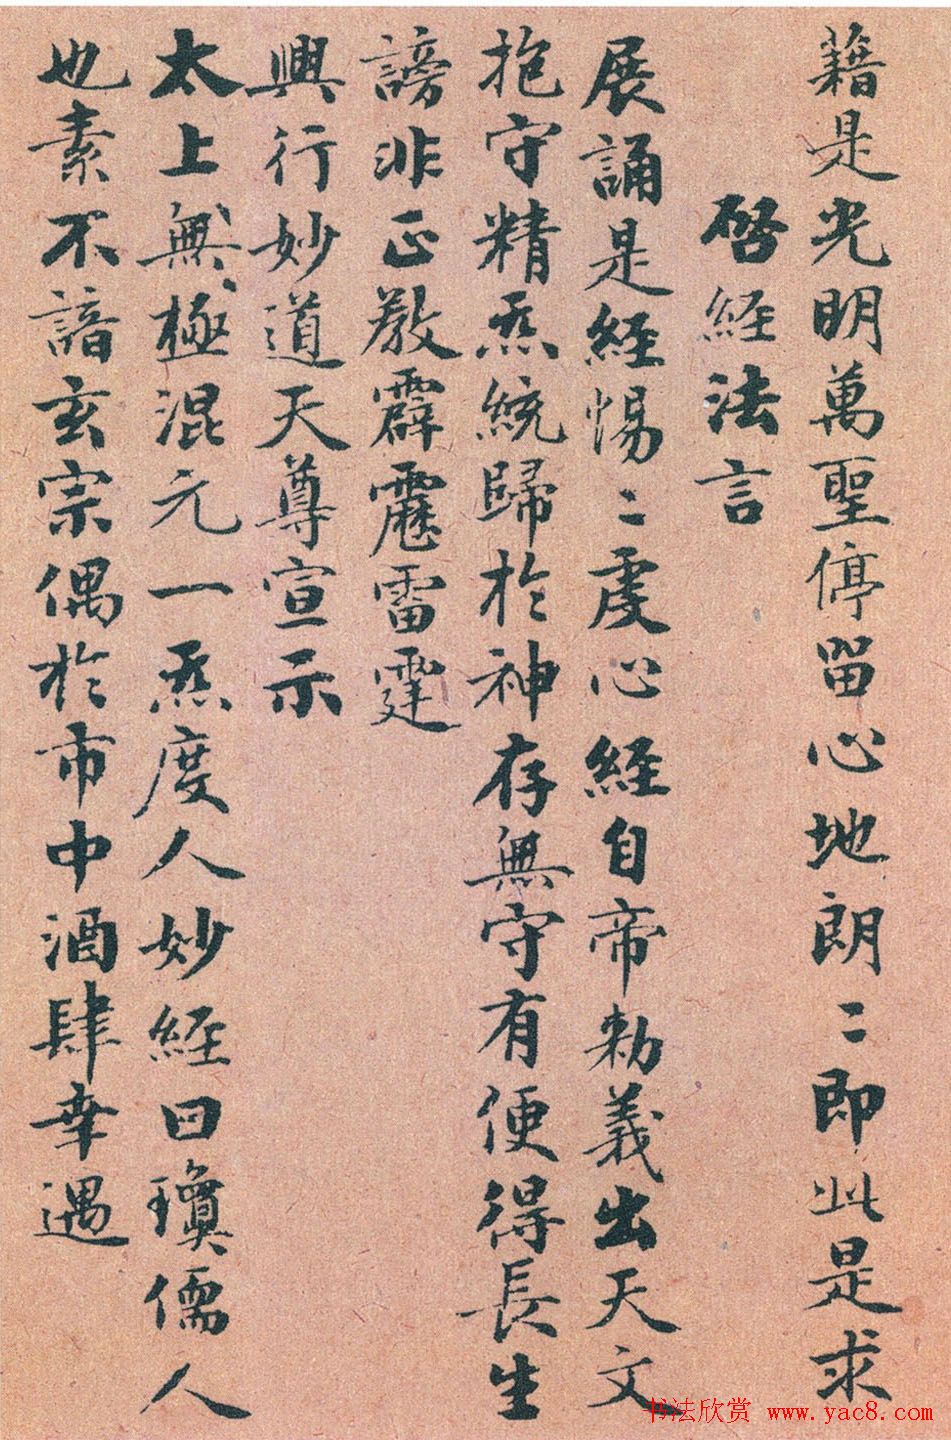 藉是光明萬聖停留心地朗〻即此是求
啓經法言
展誦是經惕〻虔心經自帝勅義出天文
抱守精炁統歸於神存無守有便得長生
謗非正教霹靂雷霆
興行妙道天尊宣示
太上無極混元一炁度人妙經曰瓊儒人
也素不諳玄宗偶於市中酒肆幸遇
书法欣赏 www.yac8.com